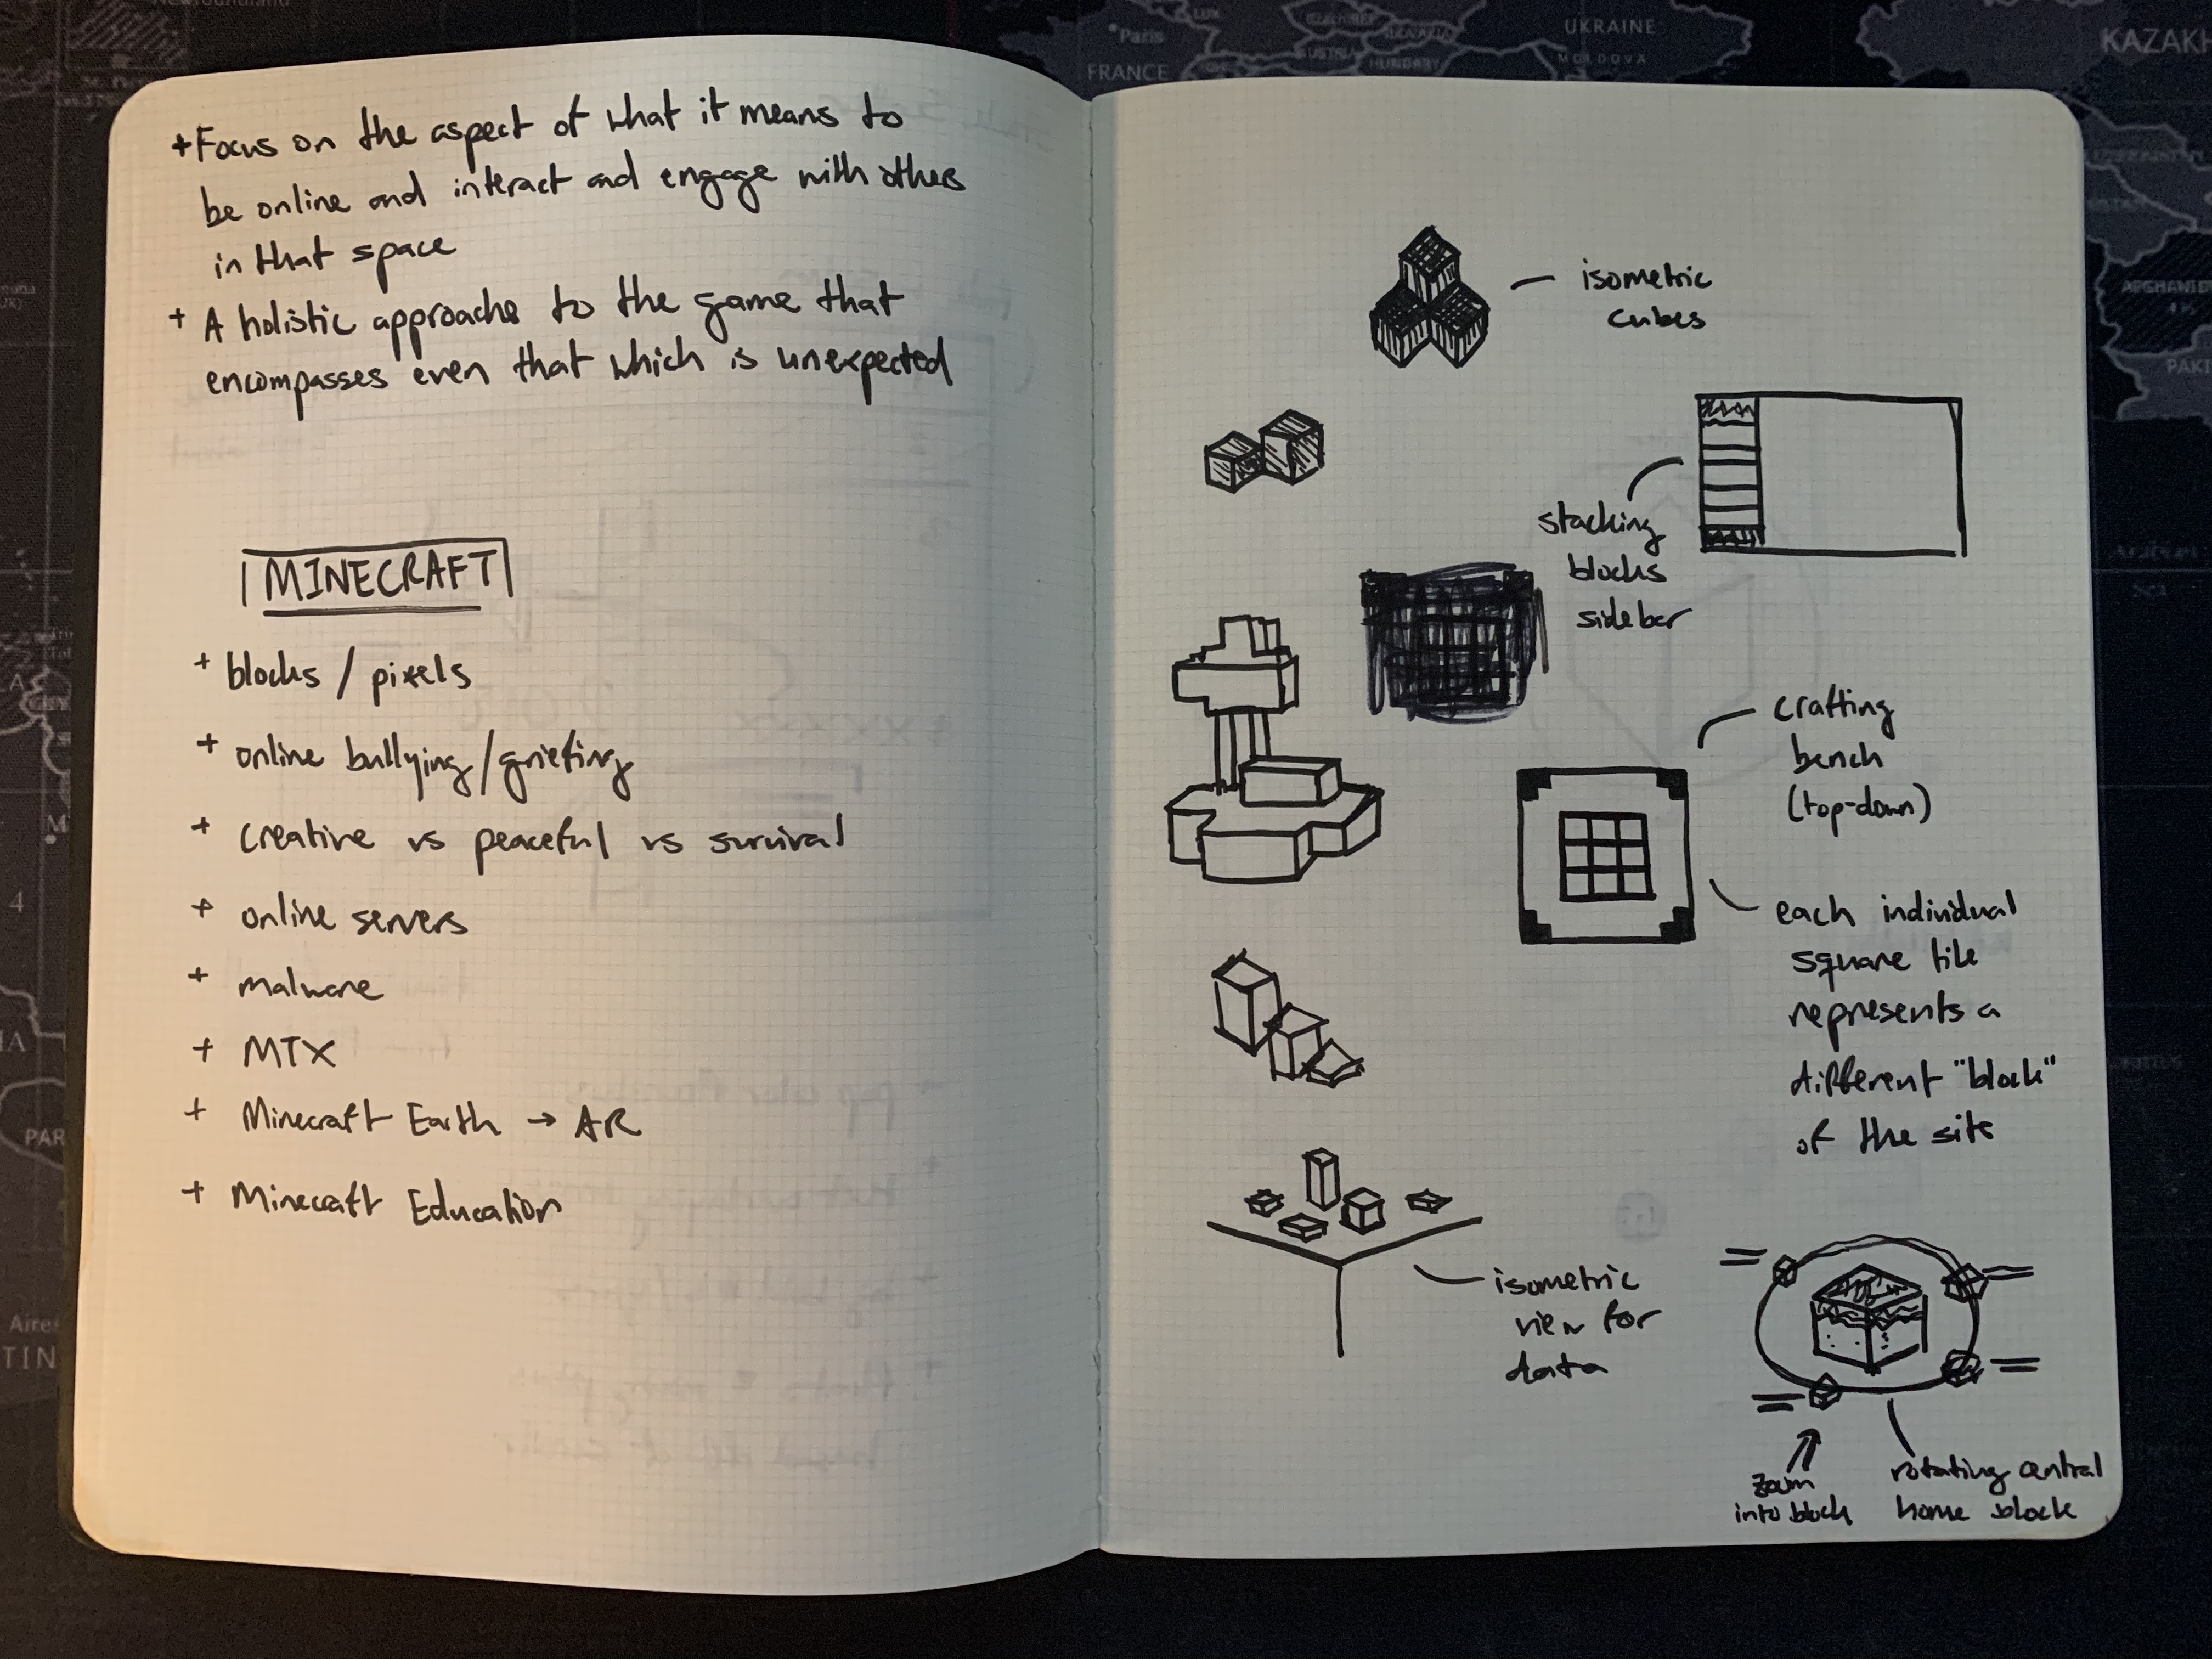 +Focus on the aspect of what it means to
be online and interact and engage with others
in that space
+ A holistic approachs to the game that
encompasses even that which is unexpected
MINECRAFT
+ blocks / pixels
+ online bullying/griefing
+ creative vs peaceful vs survival
+ online servers
+ malware
+ MTX
+ Minecraft Earth → AR
+ Minecraft Education
isometric
cubes
stacking
blocks
sidebar
crafting
bench
(top-down)
each individual
square tile
represents a
different "block"
of the site
isometric
view for
data
zoom
into block
rotating central
home block
Paris
FRANCE
AUSTRIA
HUNGARY
UKRAINE
MOLDOVA
KAZAKH
AFGHANIS
PAKI
PAR
Aires
TIN
4